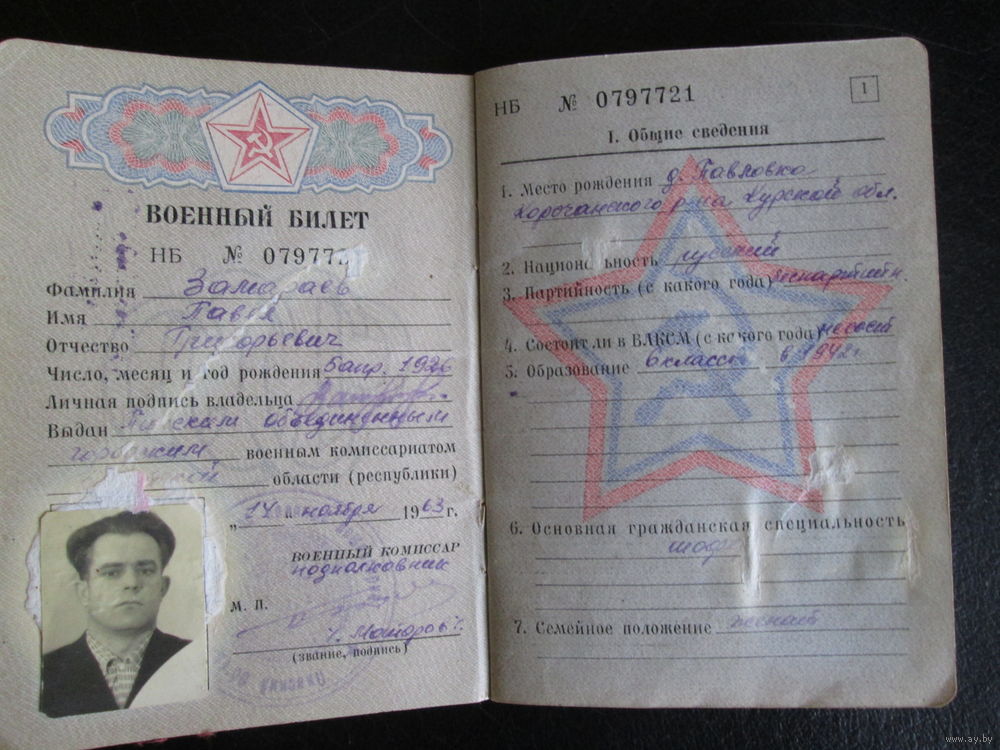 ВОЕННЫЙ БИЛЕТ
НБ № 079772
Фамилия Замараев
Имя Павел
Отчество Григорьевич
Число, месяц и год рождения 5 апр. 1926
Личная подпись владельца
Выдан объединенным
городским военным комиссариатом
области (республики)
„14" ноября 1963 г.
ВОЕННЫЙ КОМИССАР
подполковник
М. П.
(звание, подпись)
НБ № 0797721
1
I. Общие сведения
1. Место рождения д. Павловка
Корочанского р-на Курской обл.
2. Национальность русский
3. Партийность (с какого года) беспартийн.
4. Состоит ли в ВЛКСМ (с какого года) не сост
5. Образование 6 классов в 1942 г.
6. Основная гражданская специальность
шофер
7. Семейное положение женат
www.ay.by